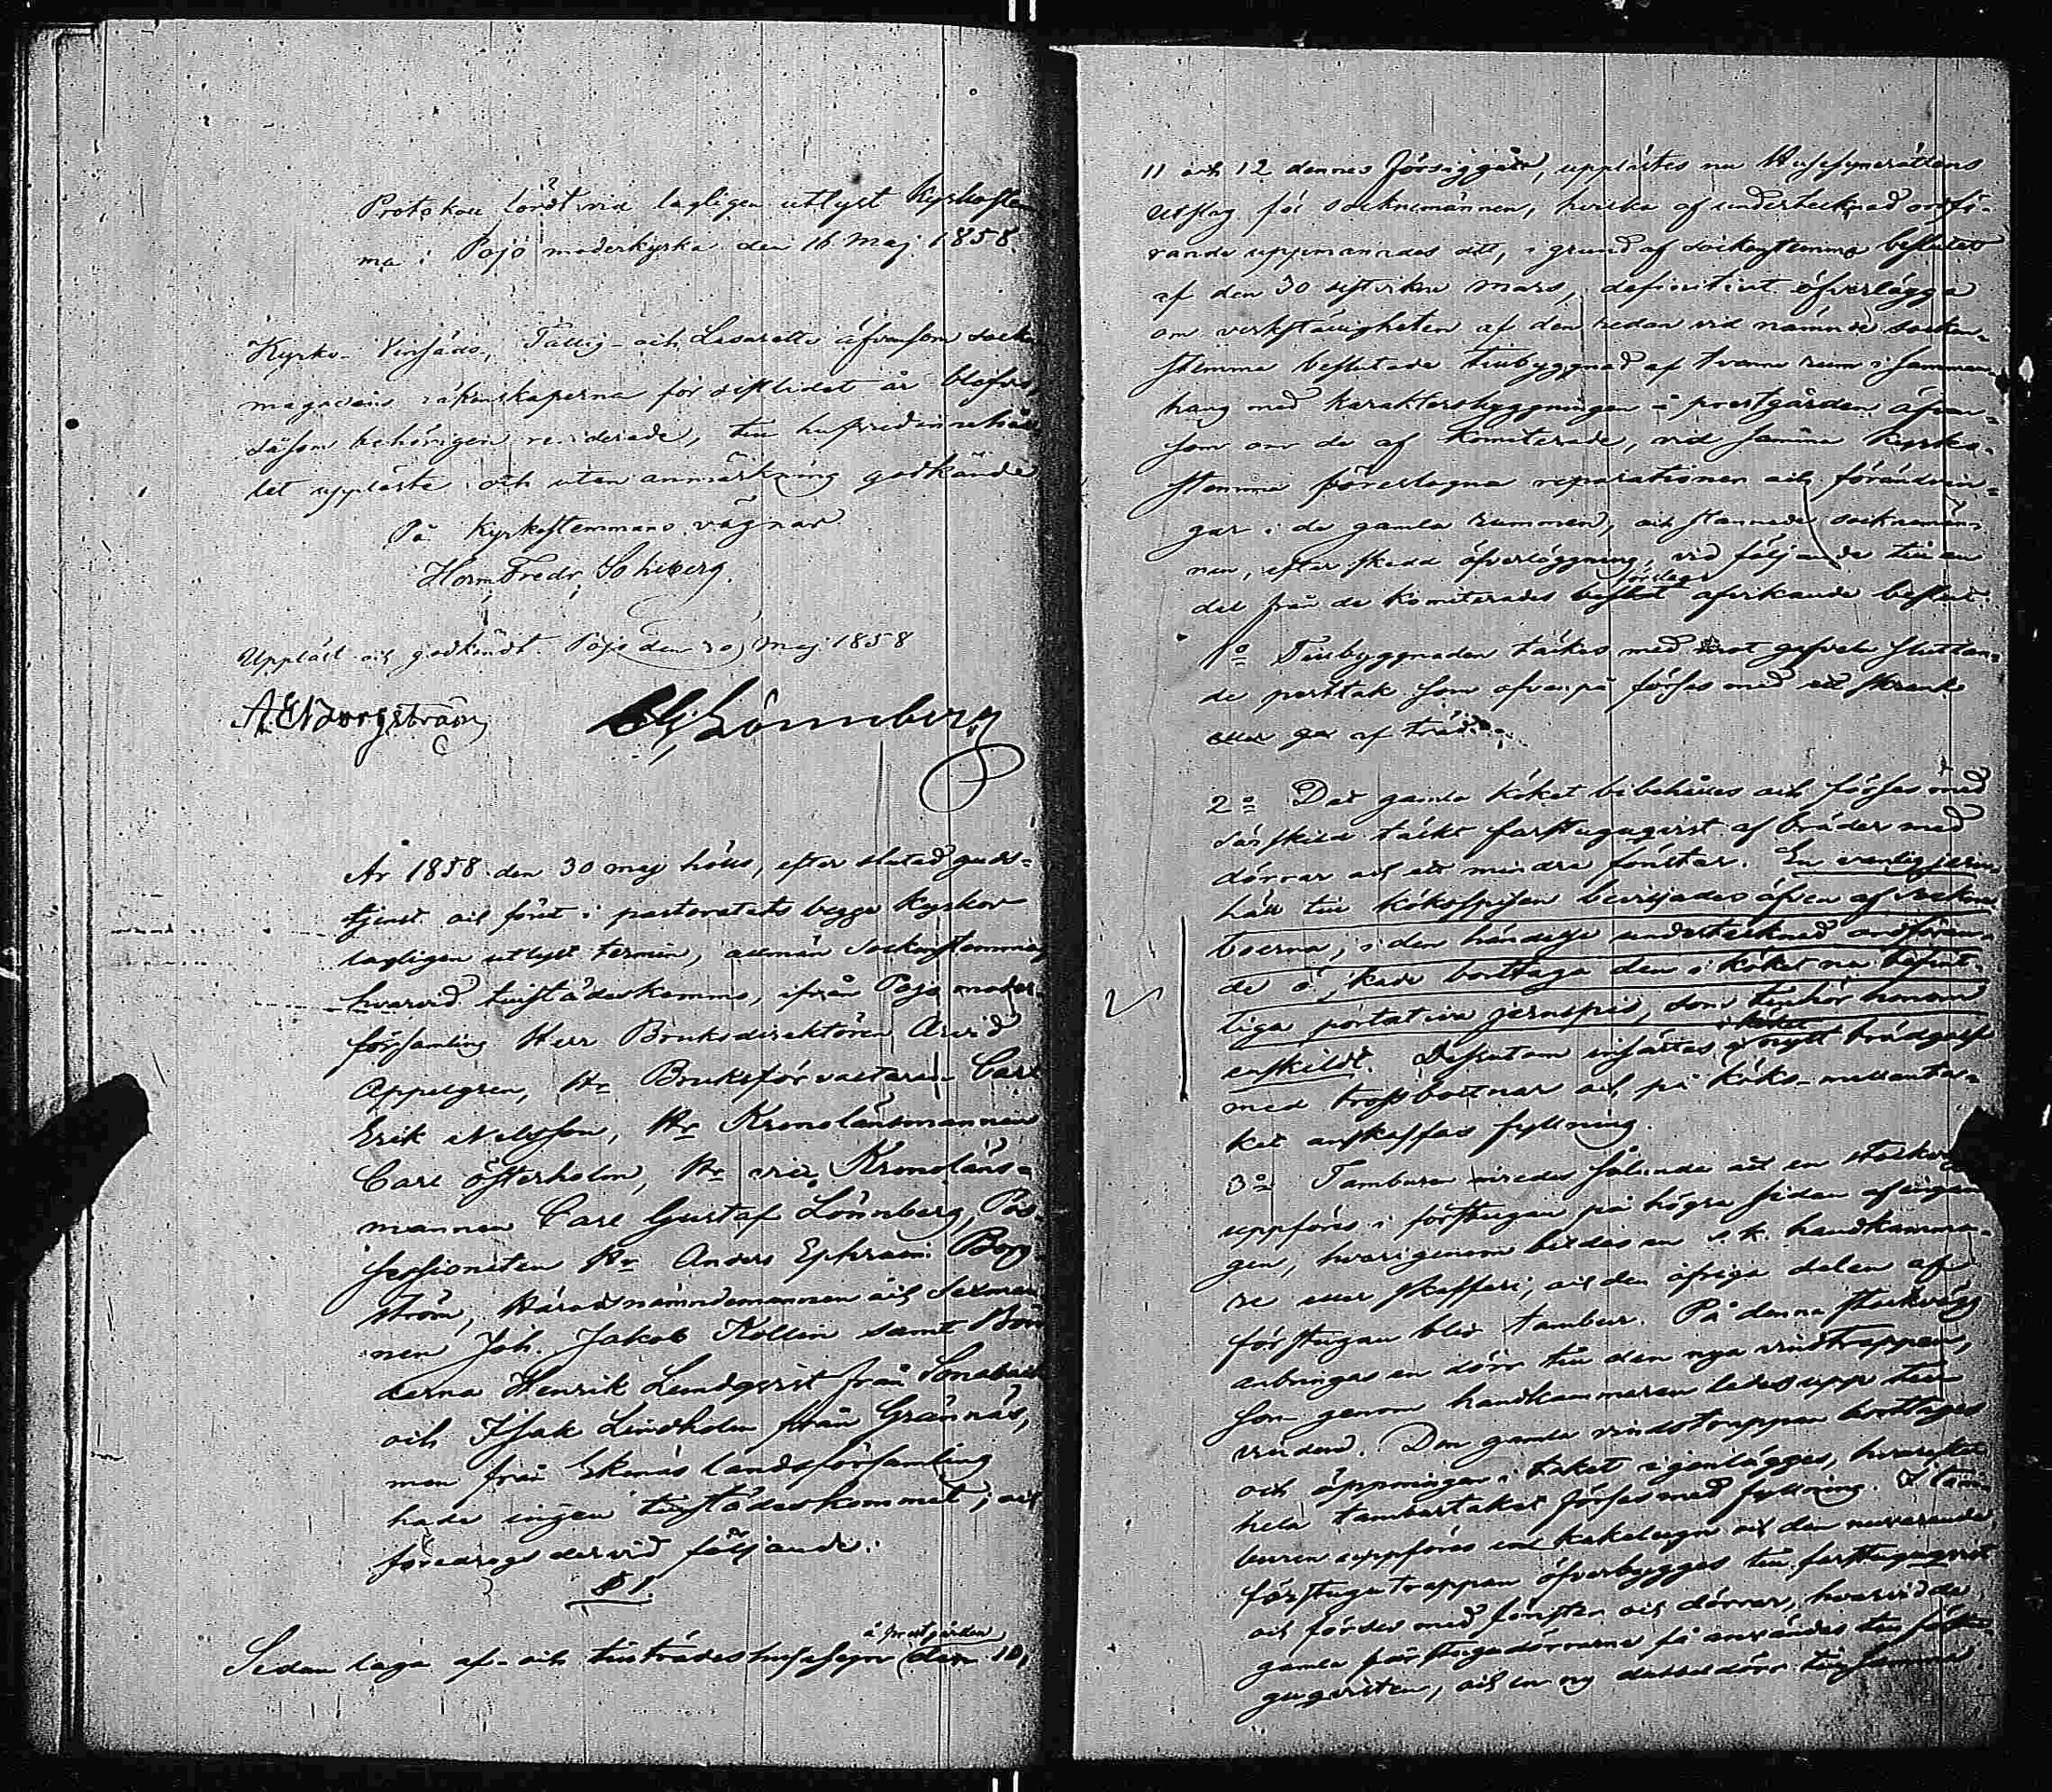 Protokoll fördt vid lagligen utlyst Kyrkostem
ma i Pojo moderkyrka den 16 Maj 1858.
Kyrko- Vinsäds, Fattig- och Lasaretts äfvensom socken
magasins räkenskaperna för sistlidet år blefvo,
såsom behörigen reviderade, till hufvudinnehål
let upplästa och utan anmärkning godkände
På Kyrkostemmans vägnar
Herm Fredr, Sohlberg.
Uppläst och godkändt. Pojo den 30 Maj 1858
A. E. Borgström CG Lönnberg
År 1858 den 30 maj hölls, efter slutad guds=
tjenst och förut i pastoratets begge kyrkor
lagligen utlyst termin, allmän Sockenstemma,
hvarvid tillstädeskommo, ifrån Pojo moder
församling Herr Bruksdirektören Arvid
Appelgren, Hr Bruksförvaltaren Carl
Erik Nelsson, Hr Kronolänsmannen
Carl Österholm, Hr vice Kronoläns=
mannen Carl Gustaf Lönnberg, Pos
sessionaten Hr Anders Ephraim Borg
ström, Häradsnämndemannen och Sexman
nen Joh. Jakob Kollin samt Bön
derna Henrik Lundqvist från Sonabacka
och Isak Lindholm från Grännäs,
men från Ekenäs landsförsamling
hade ingen tillstädeskommit; och
föredrogs dervid följande:
§ 1.
Sedan laga af- och tillträdes husesyn å prestgården den 10,
11 och 12 dennes försiggått, upplästes nu Husesynerättens
utslag för socknemännen, hvilka af undertecknad ordfö-
rande uppmanades att, i grund af sockenstemmo beslutet
af den 30 sistvikne Mars, definitivt öfverlägga
om verkställigheten af den redan vid nämnde socken-
stemma beslutade tillbyggnad af tvenne rum i samman-
hang med karaktersbyggningen å prestgården äfven-
som om de af komiterade, vid samma Kyrko-
stemma föreslagna reparationer och förändrin=
gar i de gamla rummen, och stannade sockenemän-
nen, efter skedd öfverläggning, vid följande till en
del från de komiterades förslag afvikande beslut.
1o Tillbyggnaden täckes med mot gafveln sluttan=
de perttak som ofvanpå förses med ett skrank
eller  af träd.
2o Det gamla köket bibehålles och förses med
särskild täckt farstuguqvist af bräder med
dörrar och ett mindre fönster. En vanlig jern
häll till kökspisen beviljades äfven af socken
boerna, i den händelse undertecknad ordföran-
de ö kade borttaga den i köket nu befint-
liga portativa jernspis, som tillhör honom
enskildt. Dessutom insättes i köket nytt brädgolf
med trossbottnar och på köks-mellanta-
ket anskaffas fyllning.
3o Tamburen inredes sålunda att en stockvägg
uppföres i förstugan på högra sidan af ingån
gen, hvarigenom bildas en s.k. handkamma-
re eller skafferi, och den öfriga delen af
förstugan blir tambur. På denna stockvägg
anbringas en dörr till den nya vindstrappan,
som genom handkammaren ledes upp till
vinden. Den gamla vindstrappan borttages
och öppningen i taket igenlägges, hvarefter
hela tamburtaket förses med fyllning. I tam
buren uppföres en kakelugn och den nuvarande
förstugutrappan öfverbygges till farstuguqvist
och förses med fönster och dörrar, hvarvid de
gamla förstugudörrarne få användas till förstu-
guqvisten, och en ny dubbeldörr till samma